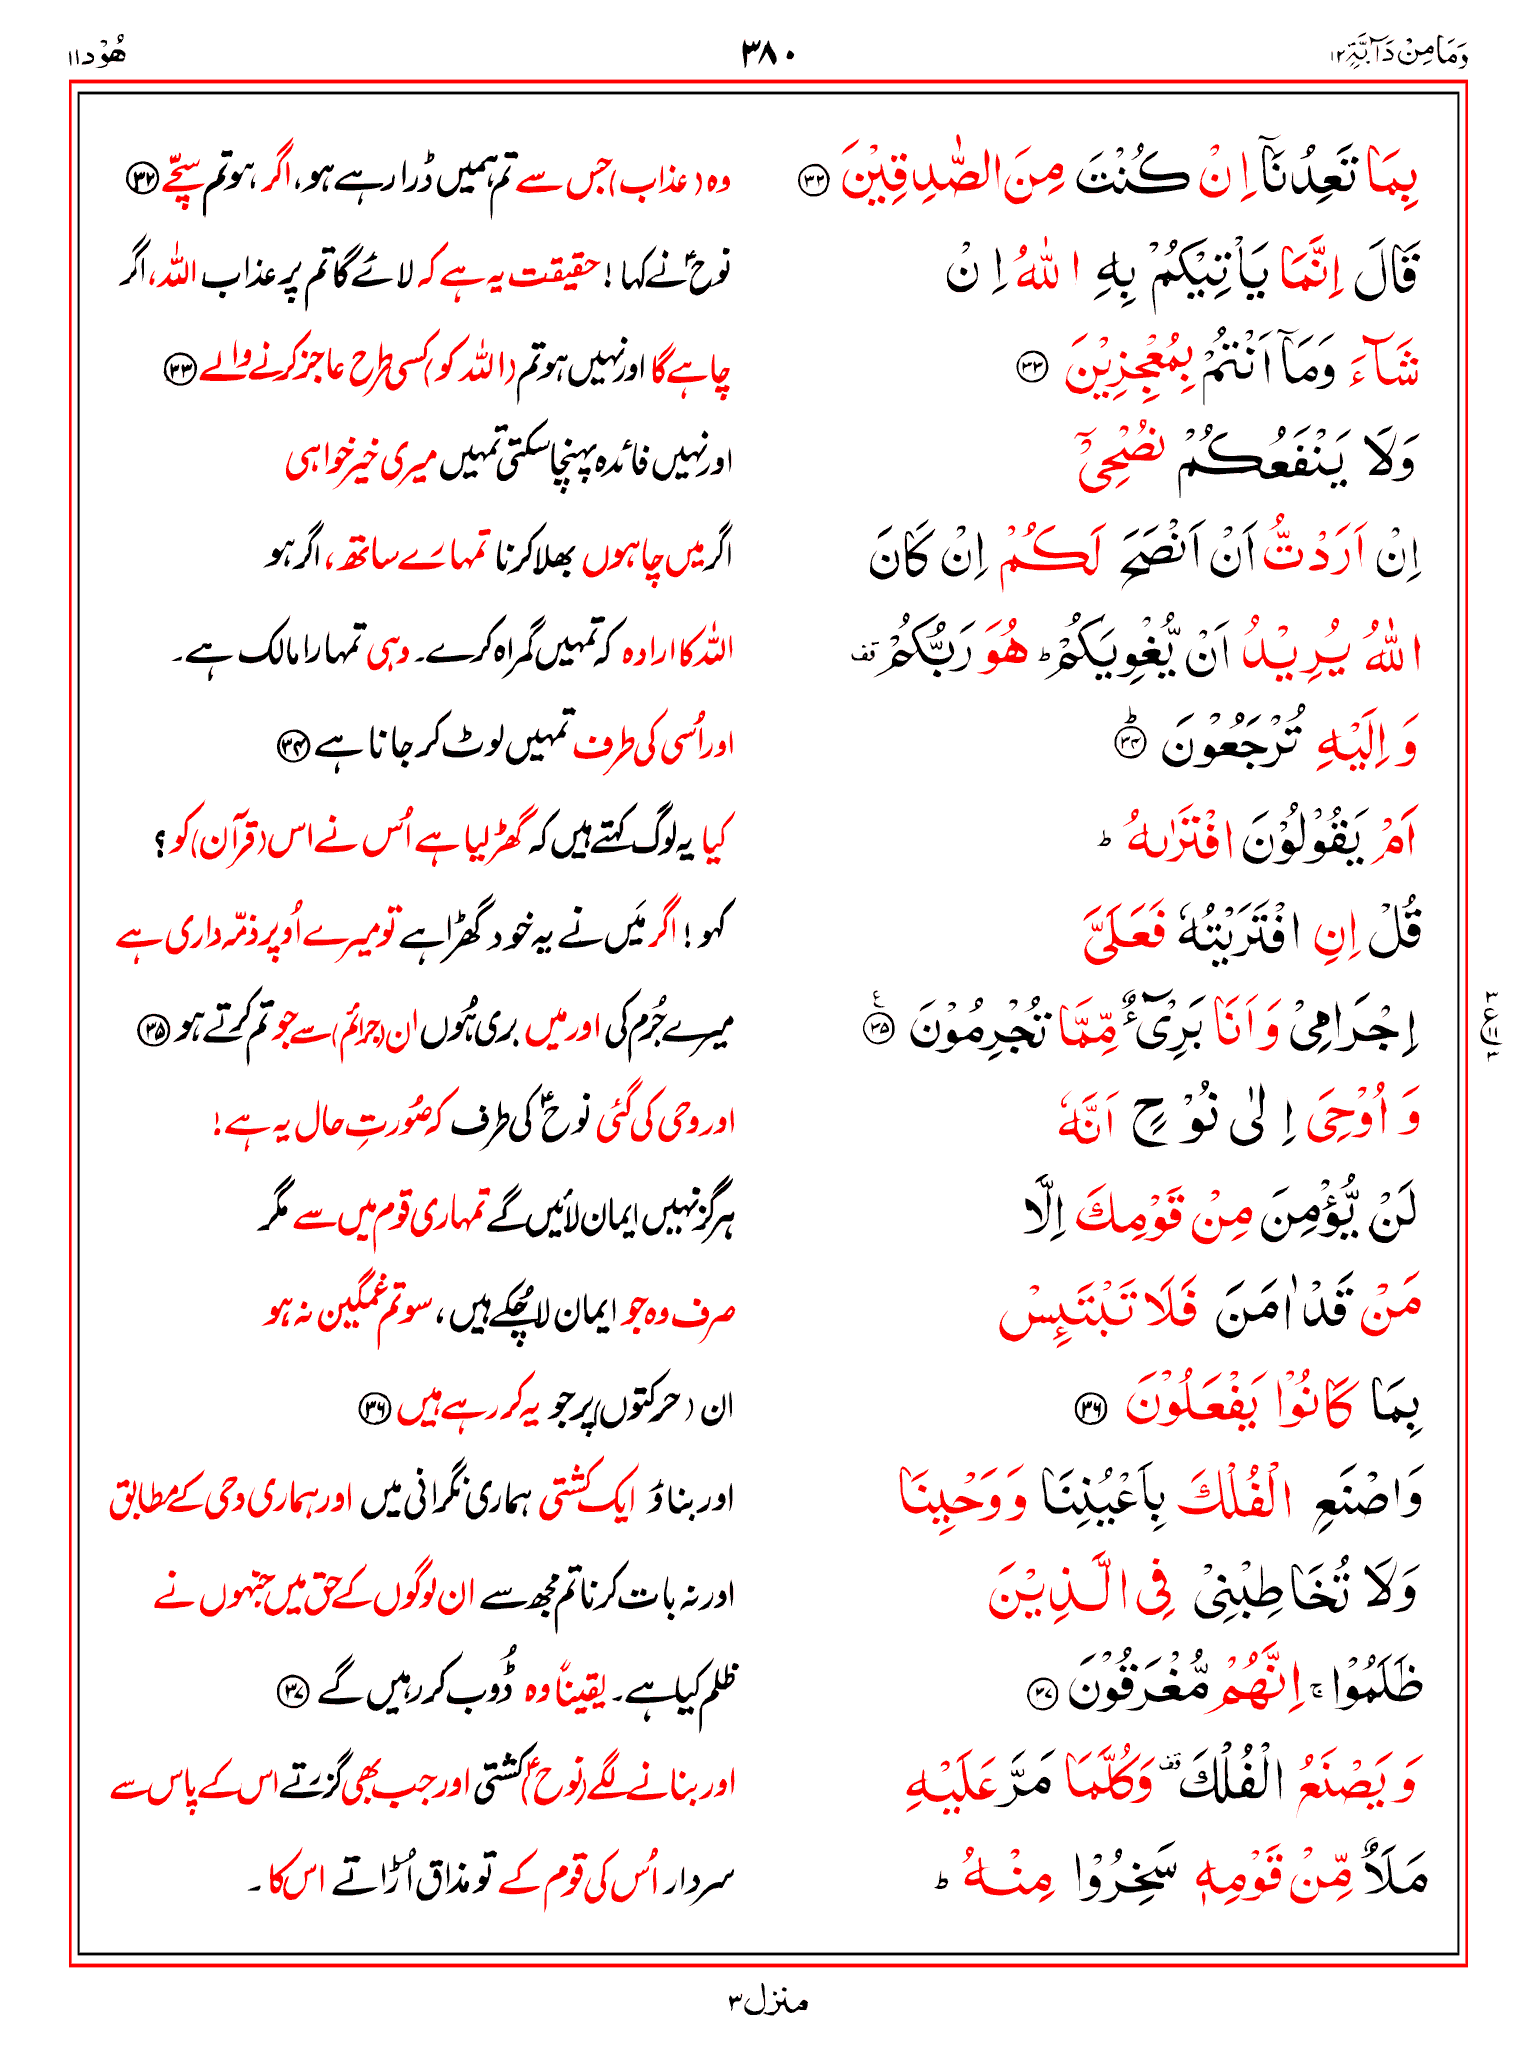 وَمَا مِنْ دَآبَّةٍ ١٢ ٣٨٠ هُوْد ١١
بِمَا تَعِدُنَآ اِنْ كُنْتَ مِنَ الصّٰدِقِيْنَ ﴿٣٢﴾ وہ (عذاب) جس سے تم ہمیں ڈرا رہے ہو، اگر ہو تم سچّے ﴿٣٢﴾
قَالَ اِنَّمَا يَاْتِيْكُمْ بِهِ اللّٰهُ اِنْ نوحؑ نے کہا! حقیقت یہ ہے کہ لائے گا تم پر عذاب اللہ، اگر
شَآءَ وَمَآ اَنْتُمْ بِمُعْجِزِيْنَ ﴿٣٣﴾ چاہے گا اور نہیں ہو تم (اللہ کو) کسی طرح عاجز کرنے والے ﴿٣٣﴾
وَلَا يَنْفَعُكُمْ نُصْحِيْٓ اور نہیں فائدہ پہنچا سکتی تمہیں میری خیر خواہی
اِنْ اَرَدْتُّ اَنْ اَنْصَحَ لَكُمْ اِنْ كَانَ اگر میں چاہوں بھلا کرنا تمہارے ساتھ، اگر ہو
اللّٰهُ يُرِيْدُ اَنْ يُّغْوِيَكُمْ ؕ هُوَ رَبُّكُمْ قف اللہ کا ارادہ کہ تمہیں گمراہ کرے۔ وہی تمہارا مالک ہے۔
وَاِلَيْهِ تُرْجَعُوْنَ ؕ﴿٣٤﴾ اور اُسی کی طرف تمہیں لوٹ کر جانا ہے ﴿٣٤﴾
اَمْ يَقُوْلُوْنَ افْتَرٰىهُ ؕ کیا یہ لوگ کہتے ہیں کہ گھڑ لیا ہے اُس نے اس (قرآن) کو؟
قُلْ اِنِ افْتَرَيْتُهٗ فَعَلَيَّ کہو! اگر مَیں نے یہ خود گھڑا ہے تو میرے اُوپر ذمّہ داری ہے
اِجْرَامِيْ وَاَنَا بَرِيْٓءٌ مِّمَّا تُجْرِمُوْنَ ﴿٣٥﴾ ع میرے جُرم کی اور میں بری ہُوں ان (جرائم) سے جو تم کرتے ہو ﴿٣٥﴾
٣ ع ١١ ٣
وَاُوْحِيَ اِلٰى نُوْحٍ اَنَّهٗ اور وحی کی گئی نوحؑ کی طرف کہ صُورتِ حال یہ ہے!
لَنْ يُّؤْمِنَ مِنْ قَوْمِكَ اِلَّا ہرگز نہیں ایمان لائیں گے تمہاری قوم میں سے مگر
مَنْ قَدْ اٰمَنَ فَلَا تَبْتَىِٕسْ صرف وہ جو ایمان لا چُکے ہیں، سو تم غمگین نہ ہو
بِمَا كَانُوْا يَفْعَلُوْنَ ﴿٣٦﴾ ان (حرکتوں) پر جو یہ کر رہے ہیں ﴿٣٦﴾
وَاصْنَعِ الْفُلْكَ بِاَعْيُنِنَا وَوَحْيِنَا اور بناؤ ایک کشتی ہماری نگرانی میں اور ہماری وحی کے مطابق
وَلَا تُخَاطِبْنِيْ فِي الَّذِيْنَ اور نہ بات کرنا تم مجھ سے ان لوگوں کے حق میں جنہوں نے
ظَلَمُوْا ۚ اِنَّهُمْ مُّغْرَقُوْنَ ﴿٣٧﴾ ظلم کیا ہے۔ یقیناً وہ ڈُوب کر رہیں گے ﴿٣٧﴾
وَيَصْنَعُ الْفُلْكَ قف وَكُلَّمَا مَرَّ عَلَيْهِ اور بنانے لگے (نوحؑ) کشتی اور جب بھی گزرتے اس کے پاس سے
مَلَاٌ مِّنْ قَوْمِهٖ سَخِرُوْا مِنْهُ ؕ سردار اُس کی قوم کے تو مذاق اُڑاتے اس کا۔
منزل ٣